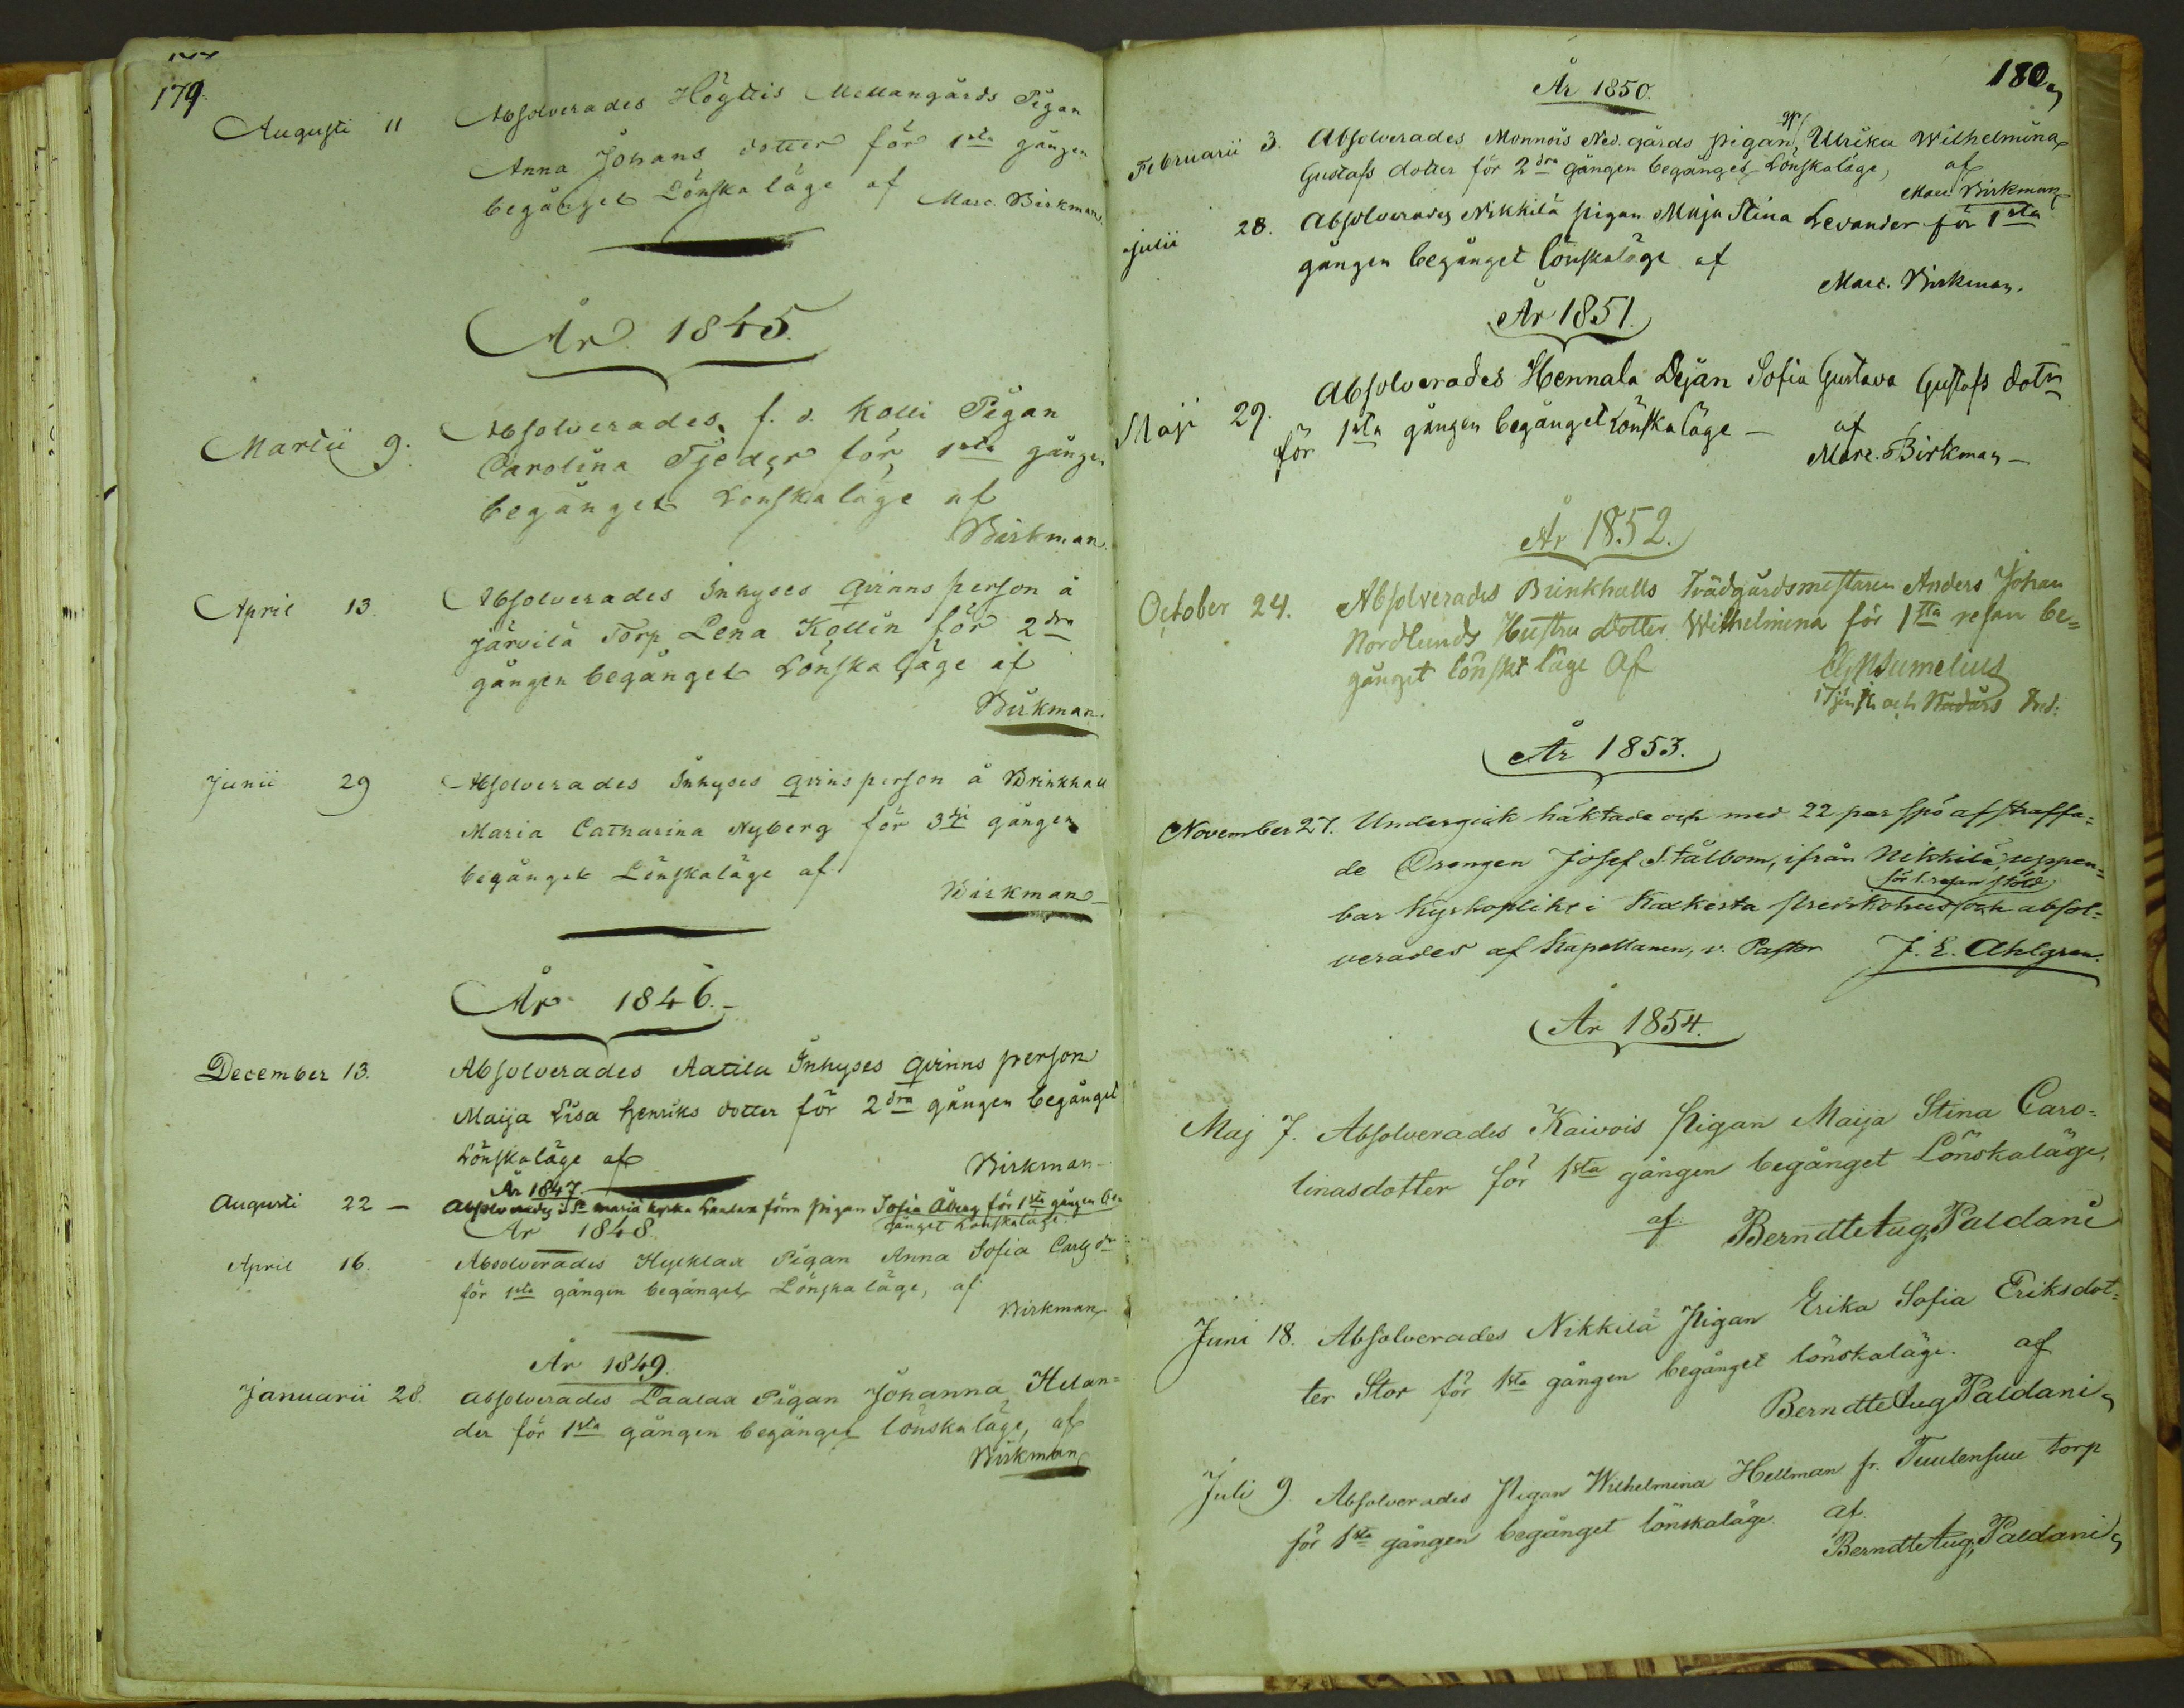 179.
Augusti 11 Absolverades Högttis Mellangårds Pigan
Anna Johans dotter för 1sta gången
begånget Lönskaläge af Marc. Birkman.
År 1845.
Martii 9. Absolverades f. d. Kolli Pigan
Carolina Tjeder för 1sta gången
begånget Lönskaläge af
Birkman.
April 13. Absolverades Inhyses qvinns person å
Järvilä Torp Lena Kollin för 2dra
gången begånget Lönskaläge af
Birkman.
Junii 29 Absolverades Inhyses qvins person å Brinkhall
Maria Catharina Nyberg för 3dje gången
begånget Lönskaläge af
Birkman
År 1846.
December 13. Absolverades Aatila Inhyses qvinns person
Maija Lisa Henriks dotter för 2dra gången begånget
Lönskaläge af
Birkman
År 1847.
Augusti 22 — Absolverades i S:t Maria kyrka Laalax förra pigan Sofia Åberg för 1sta gången be-
gånget Lönskaläge.
År 1848.
April 16. Absolverades Hycklax Pigan Anna Sofia Carls dr
för 1sta gången begånget Lönskaläge, af
Birkman
År 1849.
Januarii 28. Absolverades Laalax Pigan Johanna Helan-
der för 1sta gången begånget lönskaläge, af
Birkman
180
År 1850.
Februarii 3. Absolverades Monnois Ned. gårds pigan, Ulrika Wilhelmina
Gustafs dotter för 2dra gången begånget Lönskaläge, af
Marc. Birkman
Julii 28. Absolverades Nikkilä pigan Maja Stina Levander för 1sta
gången begånget lönskaläge af
Marc. Birkman.
År 1851.
Maji 29. Absolverades Hennala Dejan Sofia Gustava Gustafs dotr
för 1sta gången begånget Lönskaläge — af
Marc. Birkman —
År 1852.
October 24. Absolverades Brinkhalls Trädgårdsmestaren Anders Johan
Nordlunds Hustru dotter Wilhelmina för 1sta resan be=
gånget lönskt läge Af
Sumelius
i Tjenst. och Nådårs Pred.
År 1853.
November 27. Undergick häktade och med 22 par spö afstraffa=
de Drengen Josef Stålbom, ifrån Nikkilä, uppen=
för 1. resan stöld
bar kyrkoplikt i Kaxkerta predikohus och absol=
verades af Kapellanen, v. Pastor J. E. Ahlgren.
År 1854.
Maj 7. Absolverades Kaivois Pigan Maija Stina Caro=
linasdotter för 1sta gången begånget Lönskaläge,
af Berndt Aug. Paldani
Juni 18. Absolverades Nikkilä Pigan Erika Sofia Eriksdot=
ter Stor för 1sta gången begånget lönskaläge. af
Berndt Aug Paldani
Juli 9 Absolverades Pigan Wilhelmina Hellman fr. Tuulensuu torp
för 1sta gången begånget lönskaläge. af.
Berndt Aug. Paldani